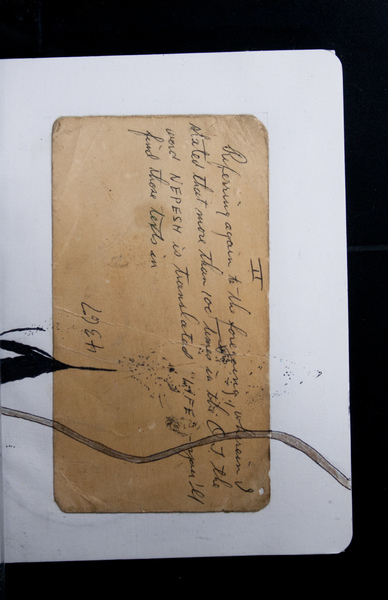 II
Referring again to the foregoing, wherein I
stated that more than 100 times in the O T the
word NEPESH is translated "LIFE", you'll
find those texts in
4367